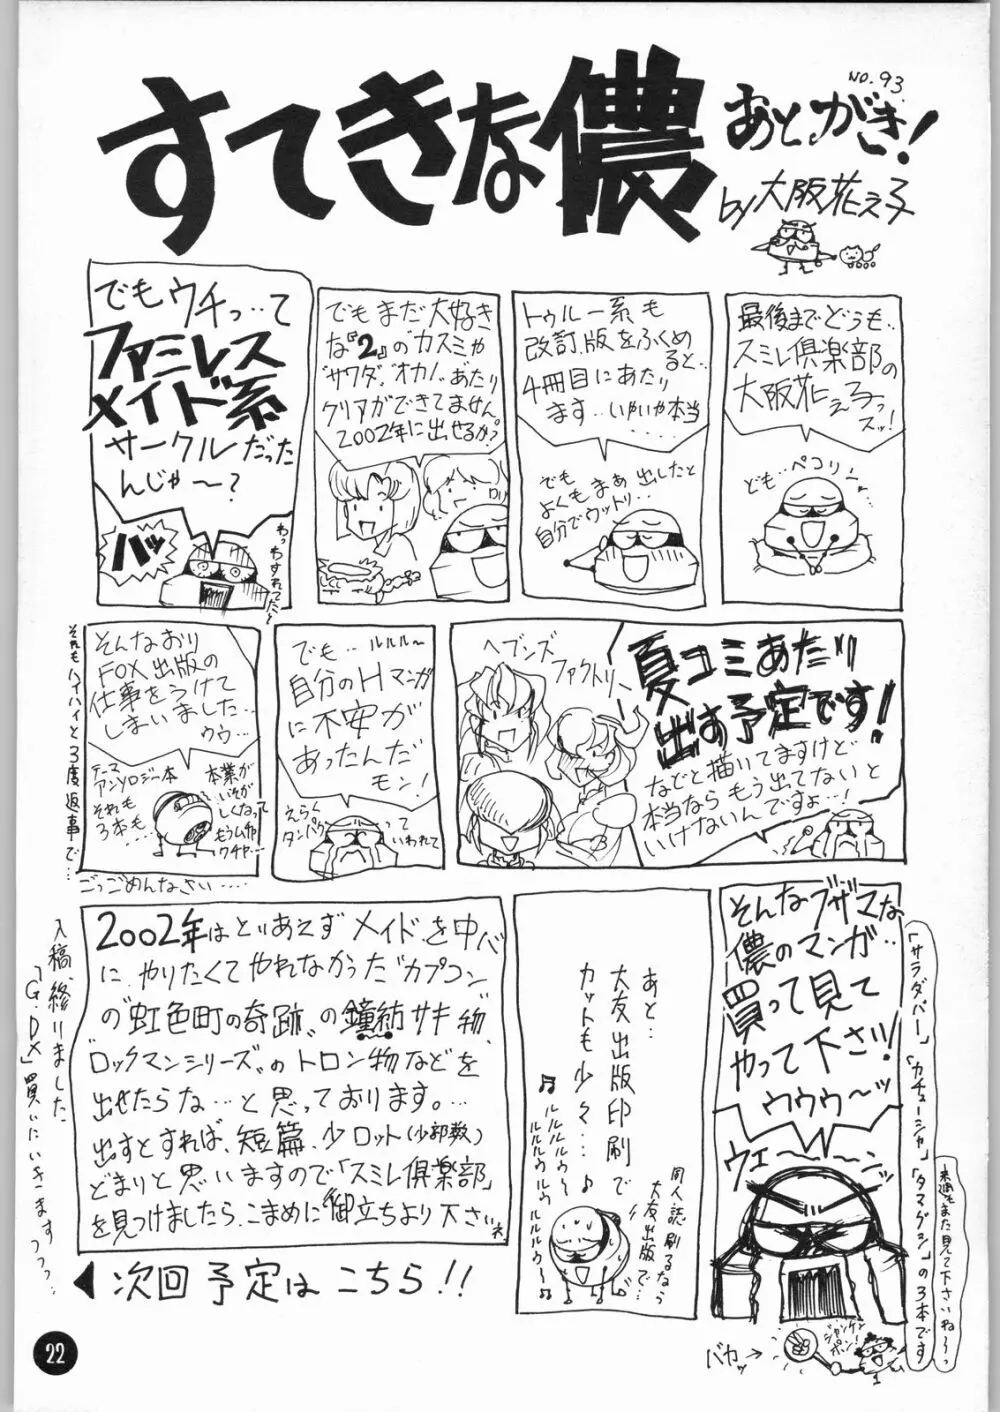 すてきな儂
NO.93.
あとがき!
by 大阪花え子
最後までどうも..
スミレ倶楽部の
大阪花え子っ
スッ!
ども..ペコリ
トゥルー系も
改訂版をふくめ
ると...
4冊目にあたり
ます..いやいや本当
でも
よくもまぁ出したと
自分でウットリ...
でもまだ大好き
な『2』のカスミや
"サワダ"、"オカノ"あたり
クリアができてません
2002年に出せるか?
でもウチっ...て
ファミレス
メイド系
サークルだった
んじゃ〜?
ハッ
わっわすれてた〜
夏コミあたり
出す予定です!
などと描いてますけど
本当ならもう出てないと
いけないんですょ...!
ヘブンズ
ファクトリー
でも..ルルル〜
自分のHマンガ
に不安が
あったんだ
モン!
えらく
タンパク
って
いわれて
そんなおり
FOX出版の
仕事をうけて
しまいました...
ウゥ...
テーマ
アンソロジー本
それも
3本も...
本業が
いそが
しくなって
もうムチャ
ウチャ...
それもハイハイと3度返事で...
ごっごめんなさい....
そんなブザマな
儂のマンガ..
買って見て
やって下さい!
ウウゥ〜ッ
ウエ〜〜ンッ
「サラダバー」「カチューシャ」「タマグラン」の3本です
来週もまた見て下さいね〜っ
ジャンケン
ポン!
バカッ→
あと...
大友出版印刷で
カットも少々...♪
♫ルルルルゥ〜
ルルルゥルゥルゥ
ルルルゥ〜♫
同人誌刷るなら
大友出版で...
2002年はとりあえずメイドを中心
に、やりたくてやれなかった"カプコン"
の"虹色町の奇跡"の鐘紡サキ物、
"ロックマンシリーズ"のトロン物などを
出せたらな...と思っております。...
出すとすれば、短篇、少ロット(少部数)
どまりと思いますので「スミレ倶楽部」
を見つけましたら、こまめに御立ちより下さいネ
◀次回予定はこちら!!
入稿、終りました
「G.DX」買いにいきますっっっ...
22